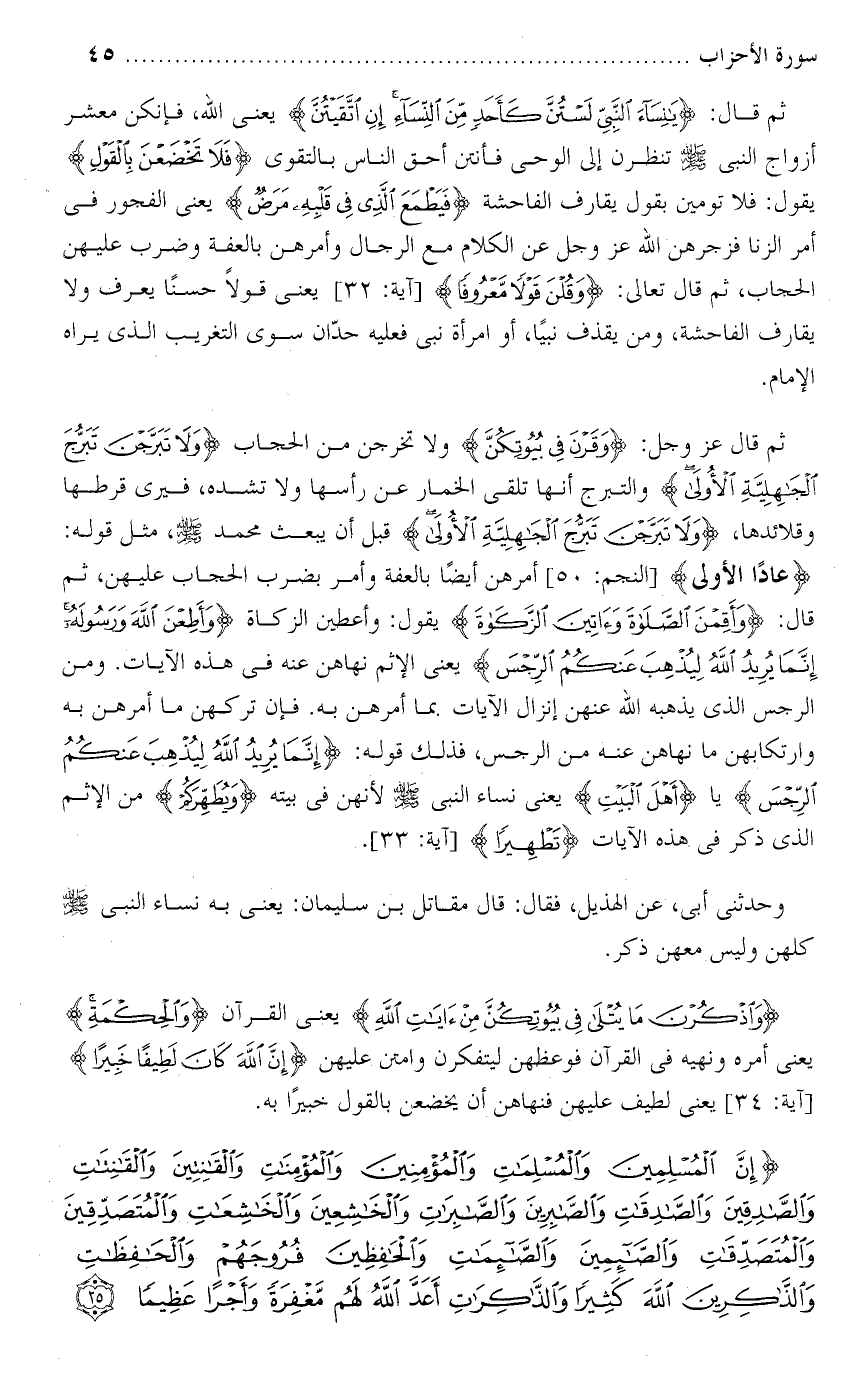 سورة الأحزاب ........................................................................ ٤٥
ثم قـــال: ﴿يَٰنِسَآءَ ٱلنَّبِىِّ لَسْتُنَّ كَأَحَدٍ مِّنَ ٱلنِّسَآءِ ۚ إِنِ ٱتَّقَيْتُنَّ﴾ يعنى الله، فـإنكن معشـر
أزواج النبى ﷺ تنظـرن إلى الوحـى فـأنتن أحـق النـاس بـالتقوى ﴿فَلَا تَخْضَعْنَ بِٱلْقَوْلِ﴾
يقول: فلا تومين بقول يقارف الفاحشة ﴿فَيَطْمَعَ ٱلَّذِى فِى قَلْبِهِۦ مَرَضٌ﴾ يعنى الفجور فـى
أمر الزنا فزجرهن الله عز وجل عن الكلام مـع الرجال وأمرهـن بالعفـة وضـرب عليـهن
الحجاب، ثم قال تعالى: ﴿وَقُلْنَ قَوْلًا مَّعْرُوفًا﴾ [آية: ٣٢] يعنـى قـولاً حسـنًا يعـرف ولا
يقارف الفاحشة، ومن يقذف نبيًا، أو امرأة نبى فعليه حدّان سـوى التغريـب الـذى يـراه
الإمام.
ثم قال عز وجل: ﴿وَقَرْنَ فِى بُيُوتِكُنَّ﴾ ولا تخرجن مـن الحجـاب ﴿وَلَا تَبَرَّجْنَ تَبَرُّجَ
ٱلْجَٰهِلِيَّةِ ٱلْأُولَىٰ ۖ﴾ والتـبرج أنـها تلقـى الخمـار عـن رأسـها ولا تشـده، فـيرى قرطـها
وقلائدها، ﴿وَلَا تَبَرَّجْنَ تَبَرُّجَ ٱلْجَٰهِلِيَّةِ ٱلْأُولَىٰ ۖ﴾ قبل أن يبعـث محمـد ﷺ، مثـل قولـه:
﴿عادًا الأولى﴾ [النجم: ٥٠] أمرهن أيضًا بالعفة وأمـر بضـرب الحجـاب عليـهن، ثـم
قال: ﴿وَأَقِمْنَ ٱلصَّلَوٰةَ وَءَاتِينَ ٱلزَّكَوٰةَ﴾ يقول: وأعطين الزكـاة ﴿وَأَطِعْنَ ٱللَّهَ وَرَسُولَهُۥٓ ۚ
إِنَّمَا يُرِيدُ ٱللَّهُ لِيُذْهِبَ عَنكُمُ ٱلرِّجْسَ﴾ يعنى الإثم نهاهن عنه فـى هـذه الآيـات. ومـن
الرجس الذى يذهبه الله عنهن إنزال الآيات بمـا أمرهـن بـه. فـإن تركـهن مـا أمرهـن بـه
وارتكابهن ما نهاهن عنـه مـن الرجـس، فذلـك قولـه: ﴿إِنَّمَا يُرِيدُ ٱللَّهُ لِيُذْهِبَ عَنكُمُ
ٱلرِّجْسَ﴾ يا ﴿أَهْلَ ٱلْبَيْتِ﴾ يعنى نساء النبى ﷺ لأنهن فى بيته ﴿وَيُطَهِّرَكُمْ﴾ من الإثـم
الذى ذكر فى هذه الآيات ﴿تَطْهِيرًا﴾ [آية: ٣٣].
وحدثنى أبى، عن الهذيل، فقال: قال مقـاتل بـن سـليمان: يعنـى بـه نسـاء النبـى ﷺ
كلهن وليس معهن ذكر.
﴿وَٱذْكُرْنَ مَا يُتْلَىٰ فِى بُيُوتِكُنَّ مِنْ ءَايَٰتِ ٱللَّهِ﴾ يعنى القـرآن ﴿وَٱلْحِكْمَةِ ۚ﴾
يعنى أمره ونهيه فى القرآن فوعظهن ليتفكرن وامتن عليهن ﴿إِنَّ ٱللَّهَ كَانَ لَطِيفًا خَبِيرًا﴾
[آية: ٣٤] يعنى لطيف عليهن فنهاهن أن يخضعن بالقول خبيرًا به.
﴿إِنَّ ٱلْمُسْلِمِينَ وَٱلْمُسْلِمَٰتِ وَٱلْمُؤْمِنِينَ وَٱلْمُؤْمِنَٰتِ وَٱلْقَٰنِتِينَ وَٱلْقَٰنِتَٰتِ
وَٱلصَّٰدِقِينَ وَٱلصَّٰدِقَٰتِ وَٱلصَّٰبِرِينَ وَٱلصَّٰبِرَٰتِ وَٱلْخَٰشِعِينَ وَٱلْخَٰشِعَٰتِ وَٱلْمُتَصَدِّقِينَ
وَٱلْمُتَصَدِّقَٰتِ وَٱلصَّٰٓئِمِينَ وَٱلصَّٰٓئِمَٰتِ وَٱلْحَٰفِظِينَ فُرُوجَهُمْ وَٱلْحَٰفِظَٰتِ
وَٱلذَّٰكِرِينَ ٱللَّهَ كَثِيرًا وَٱلذَّٰكِرَٰتِ أَعَدَّ ٱللَّهُ لَهُم مَّغْفِرَةً وَأَجْرًا عَظِيمًا ٣٥